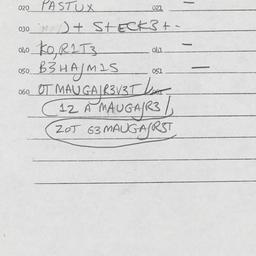 020 PASTUX 021 —
030 )+ StECK3+-
040 KO,R1T3 041 —
050 B3HAJM1S 051 —
060 OTMAUGAJR3V3T
12 A MAUGAJR3
ZOT G3MAUGAJRST